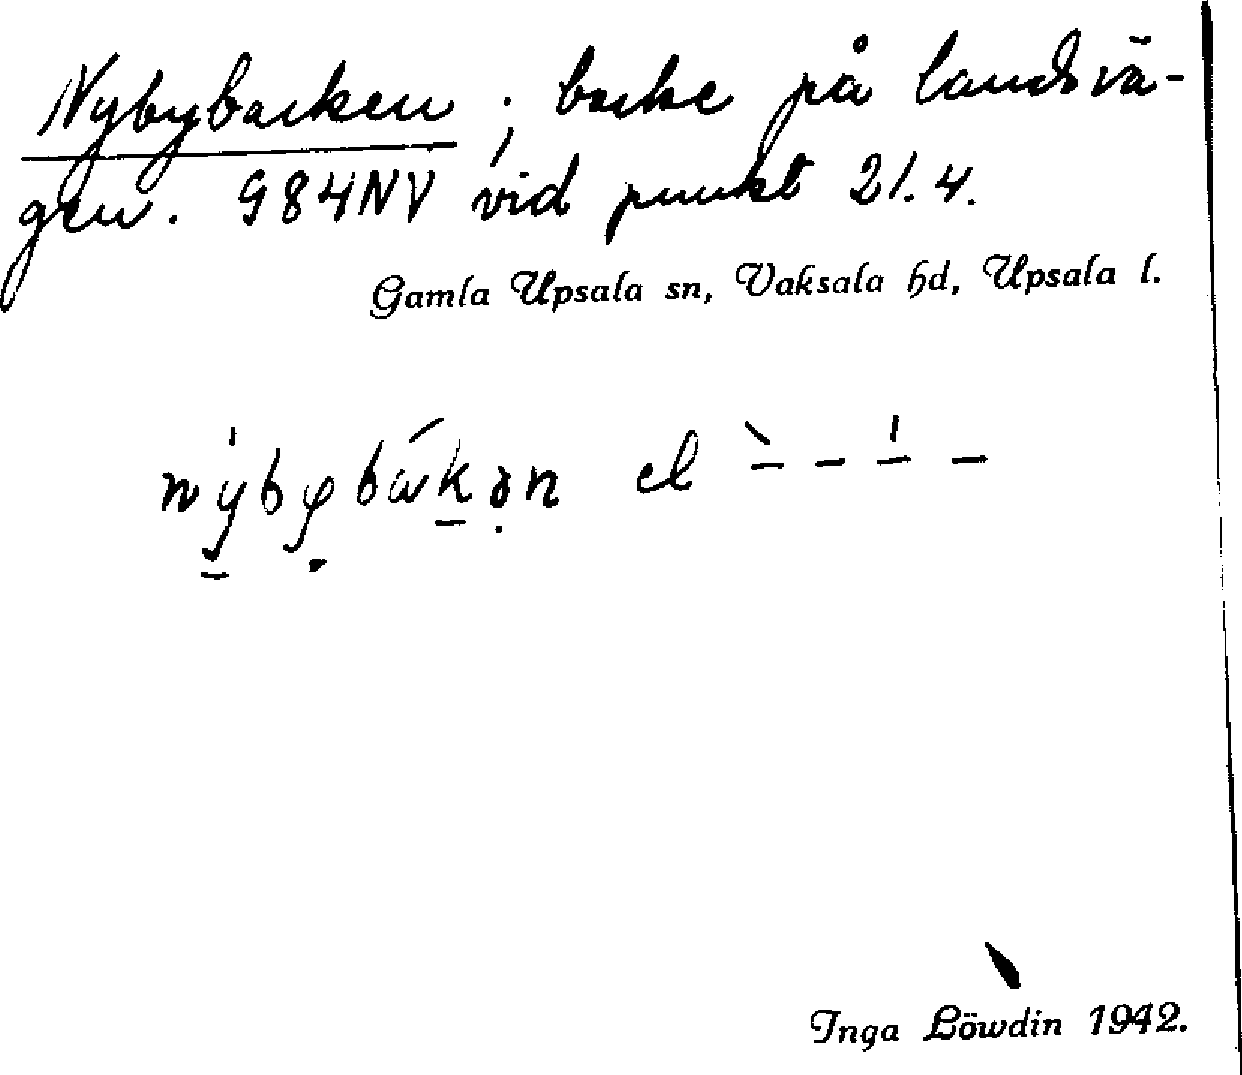 Nybybacken ; backe på landsvä-
gen. 984NV vid punkt 21.4.
Gamla Upsala sn, Vaksala hd, Upsala l.
nýby̤bákən el `– – ˈ– –
Inga Löwdin 1942.